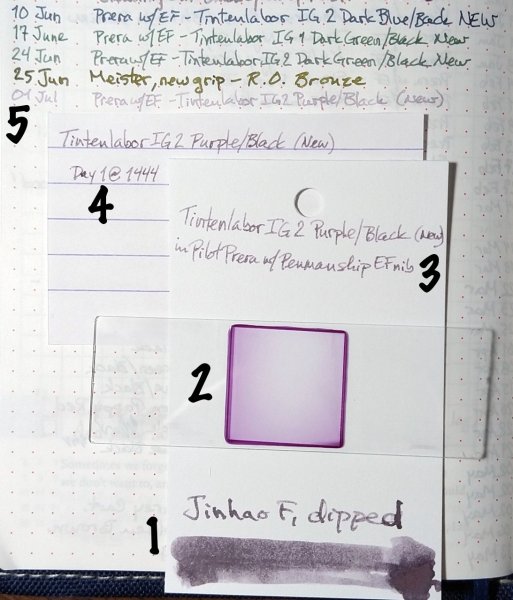 10 Jun Prera w/EF - Tintenlabor IG 2 Dark Blue/Back NEW
17 June Prera w/EF - Tintenlabor IG 1 Dark Green/Black New
24 Jun Prera w/EF - Tintenlabor IG 2 Dark Green/Black New
25 Jun Meister, new grip - R.O. Bronze
01 Jul Prera w/EF - Tintenlabor IG 2 Purple/Black (New)
5
Tintenlabor IG 2 Purple/Black (New)
Day 1 @ 1444
4
Tintenlabor IG 2 Purple/Black (New)
in Pilot Prera w/ Penmanship EF nib
3
2
Jinhao F, dipped
1